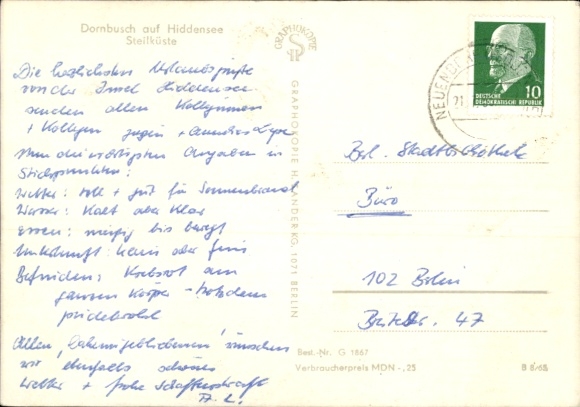 Dornbusch auf Hiddensee
Steilküste
Die herzlichsten Urlaubsgrüße
von der Insel Hiddensee
senden allen Kolleginnen
+ Kollegen
Nun die wichtigsten Angaben in
Stichpunkten:
Wetter: toll + gut für Sonnenbrand
Wasser: Kalt aber Klar
Essen: mäßig bis
Unterkunft: klein aber fein
Befinden: Krebsrot am
ganzen Körper - trotzdem
Allen, Daheimgebliebenen wünschen
wir ebenfalls schönes
Wetter + frohe Schaffenskraft
GRAPHOKOPIE
GRAPHOKOPIE H. SANDER KG, 1071 BERLIN
NEUENDORF
21
10
DEUTSCHE
DEMOKRATISCHE REPUBLIK
Brl. Stadtbibliothek
Büro
102 Berlin
Breite Str. 47
Best.-Nr. G 1867
Verbraucherpreis MDN -,25